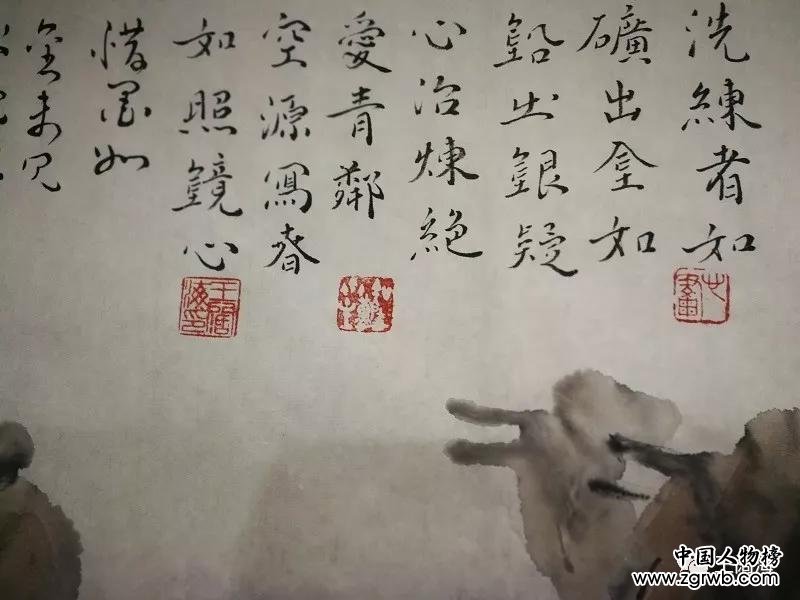 洗練者如
礦出金如
鉛出銀疑
心冶煉絕
愛青鄰
空源寫春
如照鏡心
惜墨如
金未見
中国人物榜
www.zgrwb.com